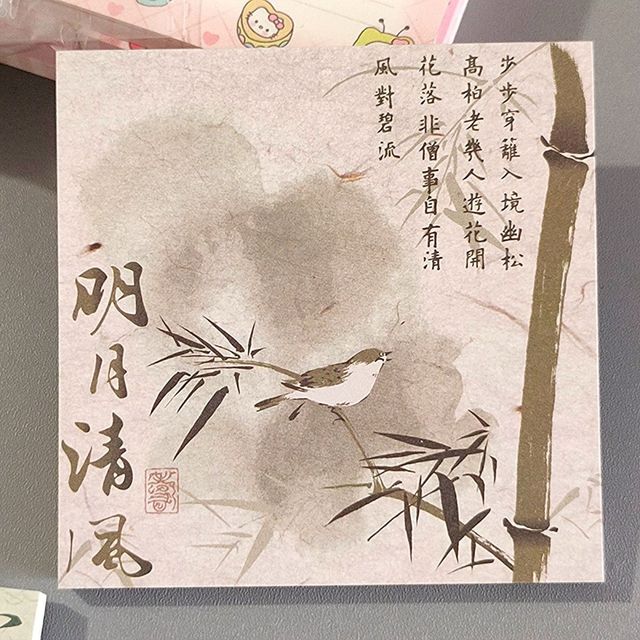 步步穿籬入境幽松
高柏老幾人遊花開
花落非僧事自有清
風對碧流
明月清風